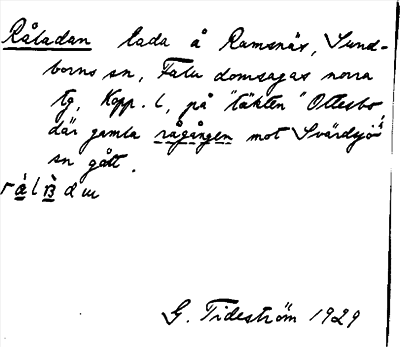 Råladan lada å Ramsnäs, Sund-
borns sn, Falu domsagas norra
tg, Kopp. l, på "täkten" Ottesbo,
där gamla rågången mot Svärdsjö
sn gått.
G. Tideström 1929